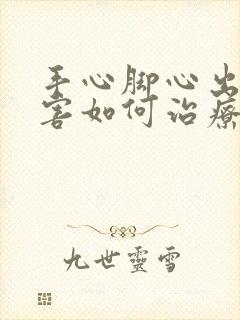 手心脚心出
害如何治療
九世靈雪